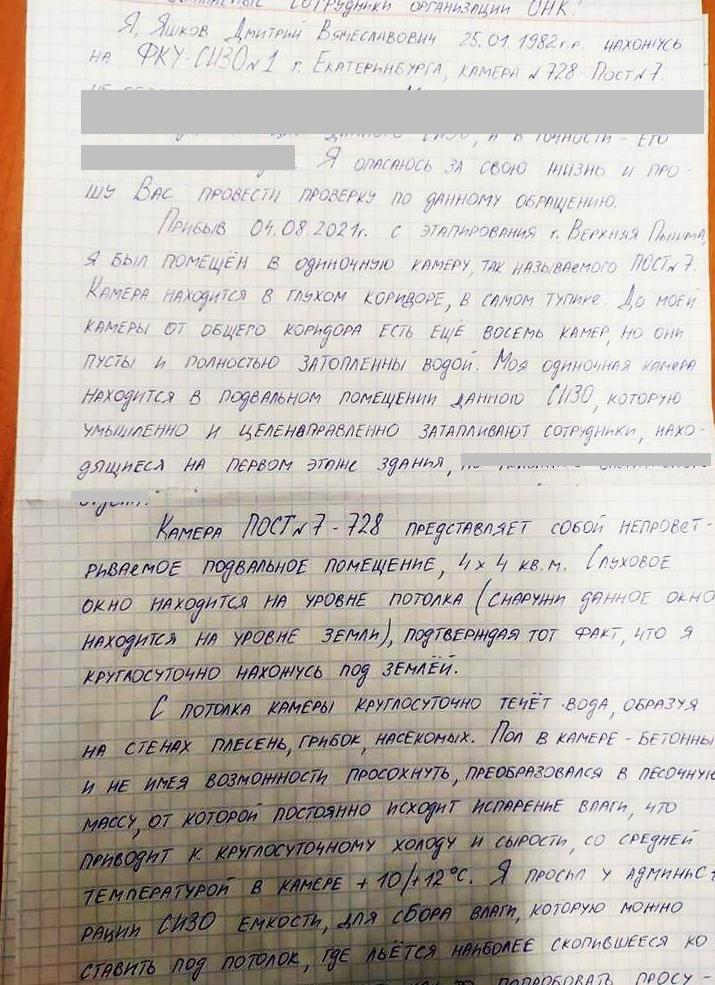 сотрудники организации ОНК!
Я, Яшков Дмитрий Вячеславович 25.01.1982г.р. нахожусь
на ФКУ-СИЗО №1 г. Екатеринбурга, камера №728-Пост №7.
данного СИЗО, а в точности - его
Я опасаюсь за свою жизнь и про-
шу Вас провести проверку по данному обращению.
Прибыв 04.08.2021г. с этапирования г. Верхняя Пышма,
я был помещён в одиночную камеру, так называемого ПОСТ №7.
Камера находится в глухом коридоре, в самом тупике. До моей
камеры от общего коридора есть ещё восемь камер, но они
пусты и полностью затопленны водой. Моя одиночная камера
находится в подвальном помещении данного СИЗО, которую
умышленно и целенаправленно затапливают сотрудники, нахо-
дящиеся на первом этаже здания,
Камера ПОСТ №7-728 представляет собой непровет-
риваемое подвальное помещение, 4х4 кв.м. Слуховое
окно находится на уровне потолка (снаружи данное окно
находится на уровне земли), подтверждая тот факт, что я
круглосуточно нахожусь под землёй.
С потолка камеры круглосуточно течёт вода, образуя
на стенах плесень, грибок, насекомых. Пол в камере - бетонны
и не имея возможности просохнуть, преобразовался в песочную
массу, от которой постоянно исходит испарение влаги, что
приводит к круглосуточному холоду и сырости, со средней
температурой в камере +10/+12°С. Я просил у админист
рации СИЗО емкости, для сбора влаги, которую можно
ставить под потолок, где льётся наиболее скопившееся ко
попробовать просу-